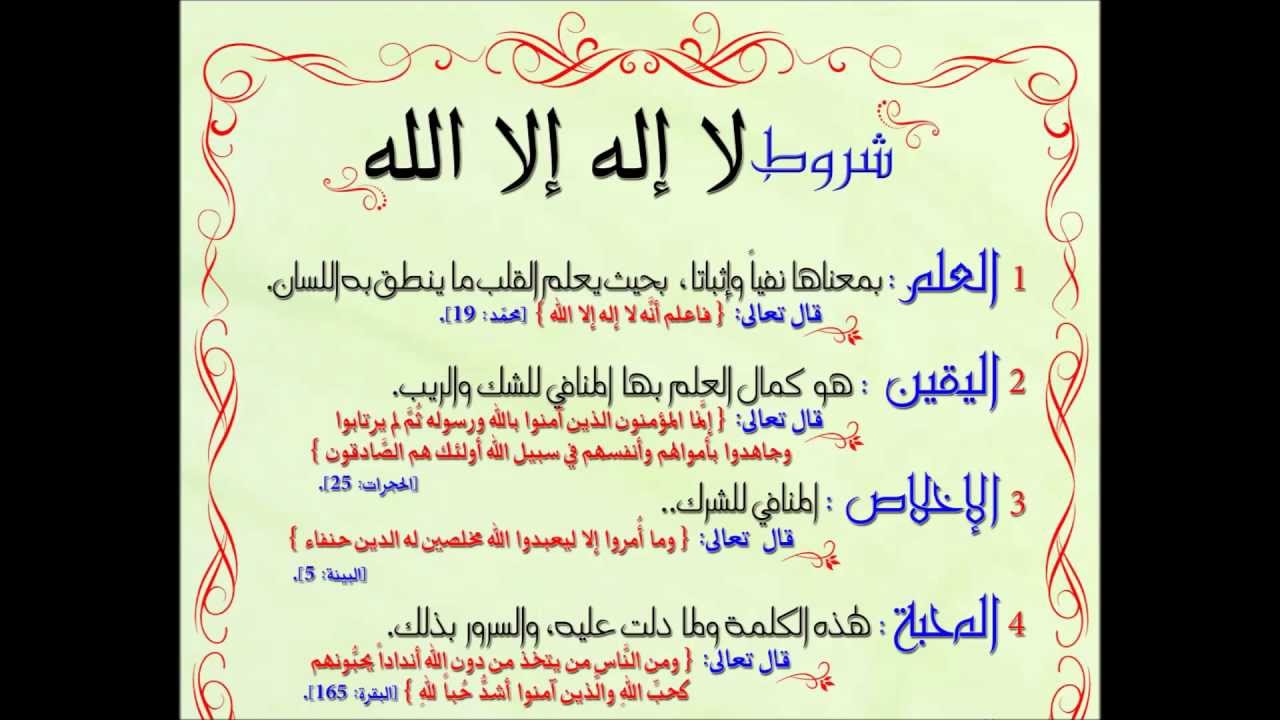 شروط لا إله إلا الله
1 العلم : بمعناها نفياً وإثباتا، بحيث يعلم القلب ما ينطق به اللسان.
قال تعالى: { فاعلم أنَّه لا إله إلا الله } [محمّد: 19].
2 اليقين : هو كمال العلم بها المنافي للشك والريب.
قال تعالى: { إنَّما المؤمنون الذين آمنوا بالله ورسوله ثُمَّ لم يرتابوا
وجاهدوا بأموالهم وأنفسهم في سبيل الله أولئك هم الصَّادقون }
[الحجرات: 25].
3 الإخلاص : المنافي للشرك..
قال تعالى: { وما أُمروا إلا ليعبدوا الله مخلصين له الدين حنفاء }
[البينة: 5].
4 المحبة : لهذه الكلمة ولما دلت عليه، والسرور بذلك.
قال تعالى: { ومن النَّاس من يتخذ من دون الله أنداداً يحبُّونهم
كحبِّ اللهِ والَّذين آمنوا أشدُّ حُباً للهِ } [البقرة: 165].